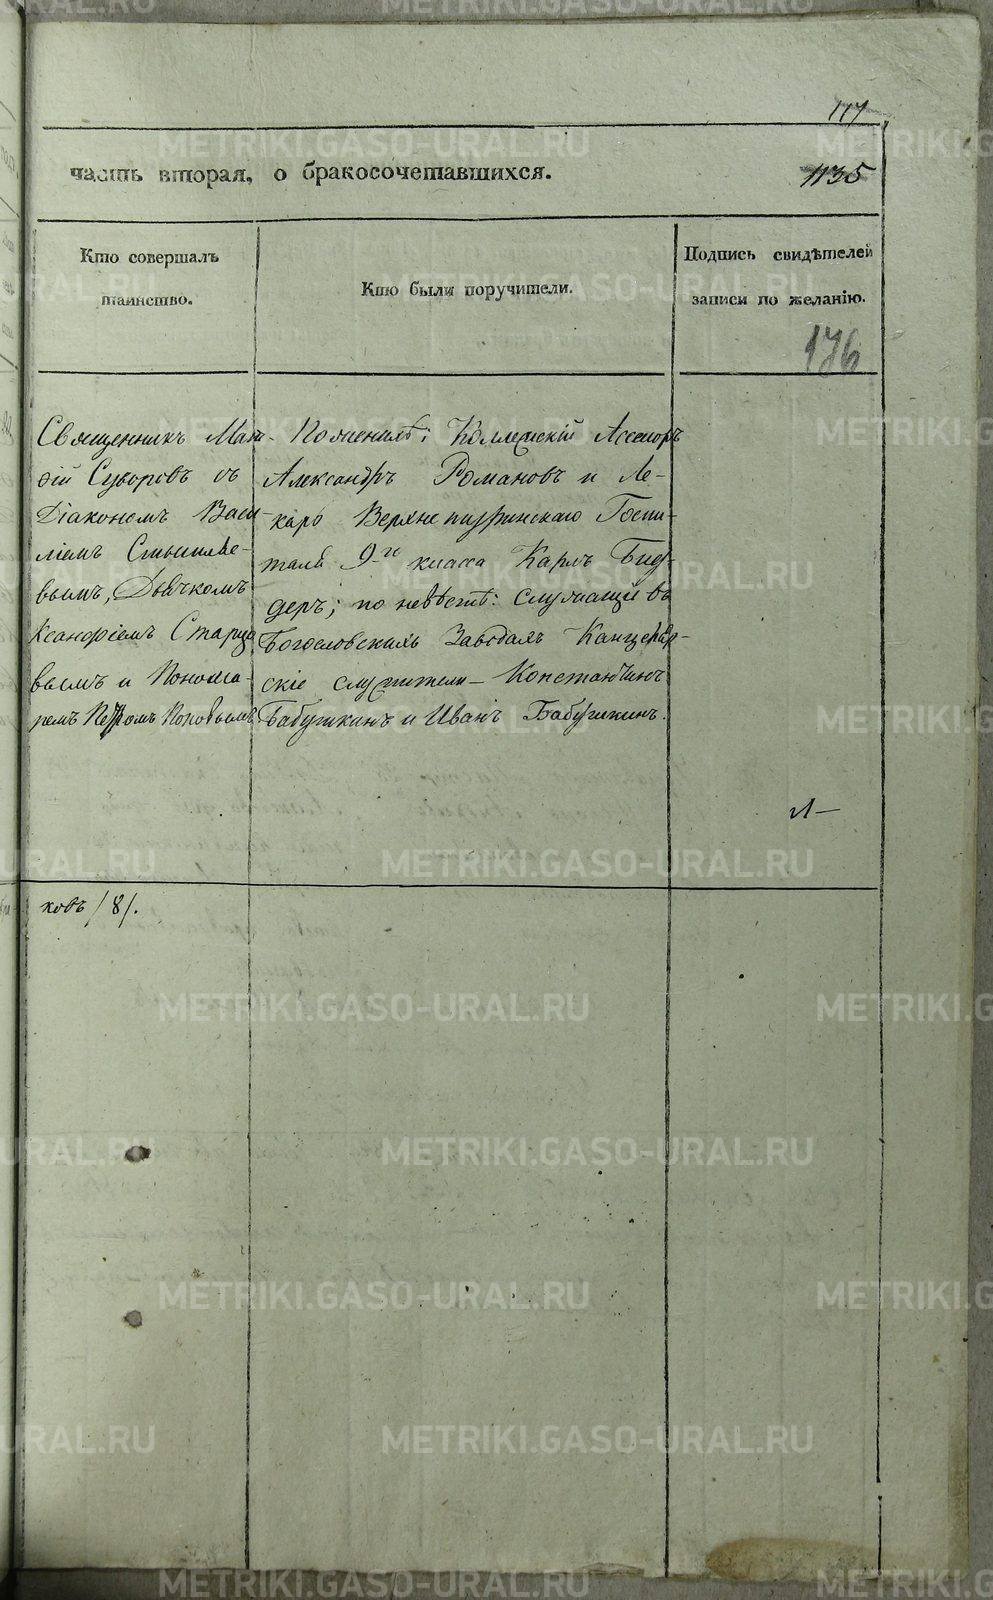 117
часть вторая, о бракосочетавшихся.
1135
Кто совершалъ
таинство.
Кто были поручители.
Подпись свидѣтелей
записи по желанію.
176
Священникъ Мат-
ѳій Суворовъ съ
Діакономъ Васи-
ліемъ
вымъ, Дьячкомъ
Ксанфіемъ Старце
вымъ и Понома-
ремъ Петромъ Поповымъ
По женихѣ: Коллежскій Ассесоръ
Александръ Романовъ и Ле-
карь Верхнетуринскаго Госпи-
таля 9го класса Карлъ Бид-
деръ; по невѣстѣ: служащіе въ
Богословскихъ Заводахъ Канцеляр-
скіе служители – Константинъ
Бабушкинъ и Иванъ Бабушкинъ.
ковъ /8/.
METRIKI.GASO-URAL.RU